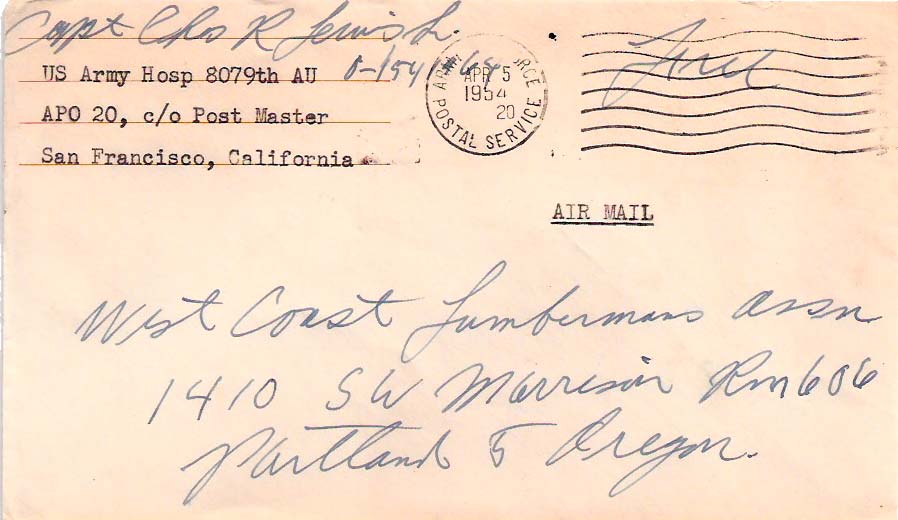 Capt Chas R Lewis Jr.
US Army Hosp 8079th AU
APO 20, c/o Post Master
San Francisco, California
APR 5
1954
20
POSTAL SERVICE
Free
AIR MAIL
West Coast Lumbermans assn
1410 SW Morrison Rm 606
Portland 5 Oregon.